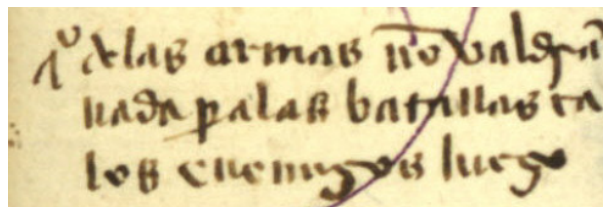 q̄o delas armas no valdrā
nada ꝑalas batallas ca
los enemigos luego